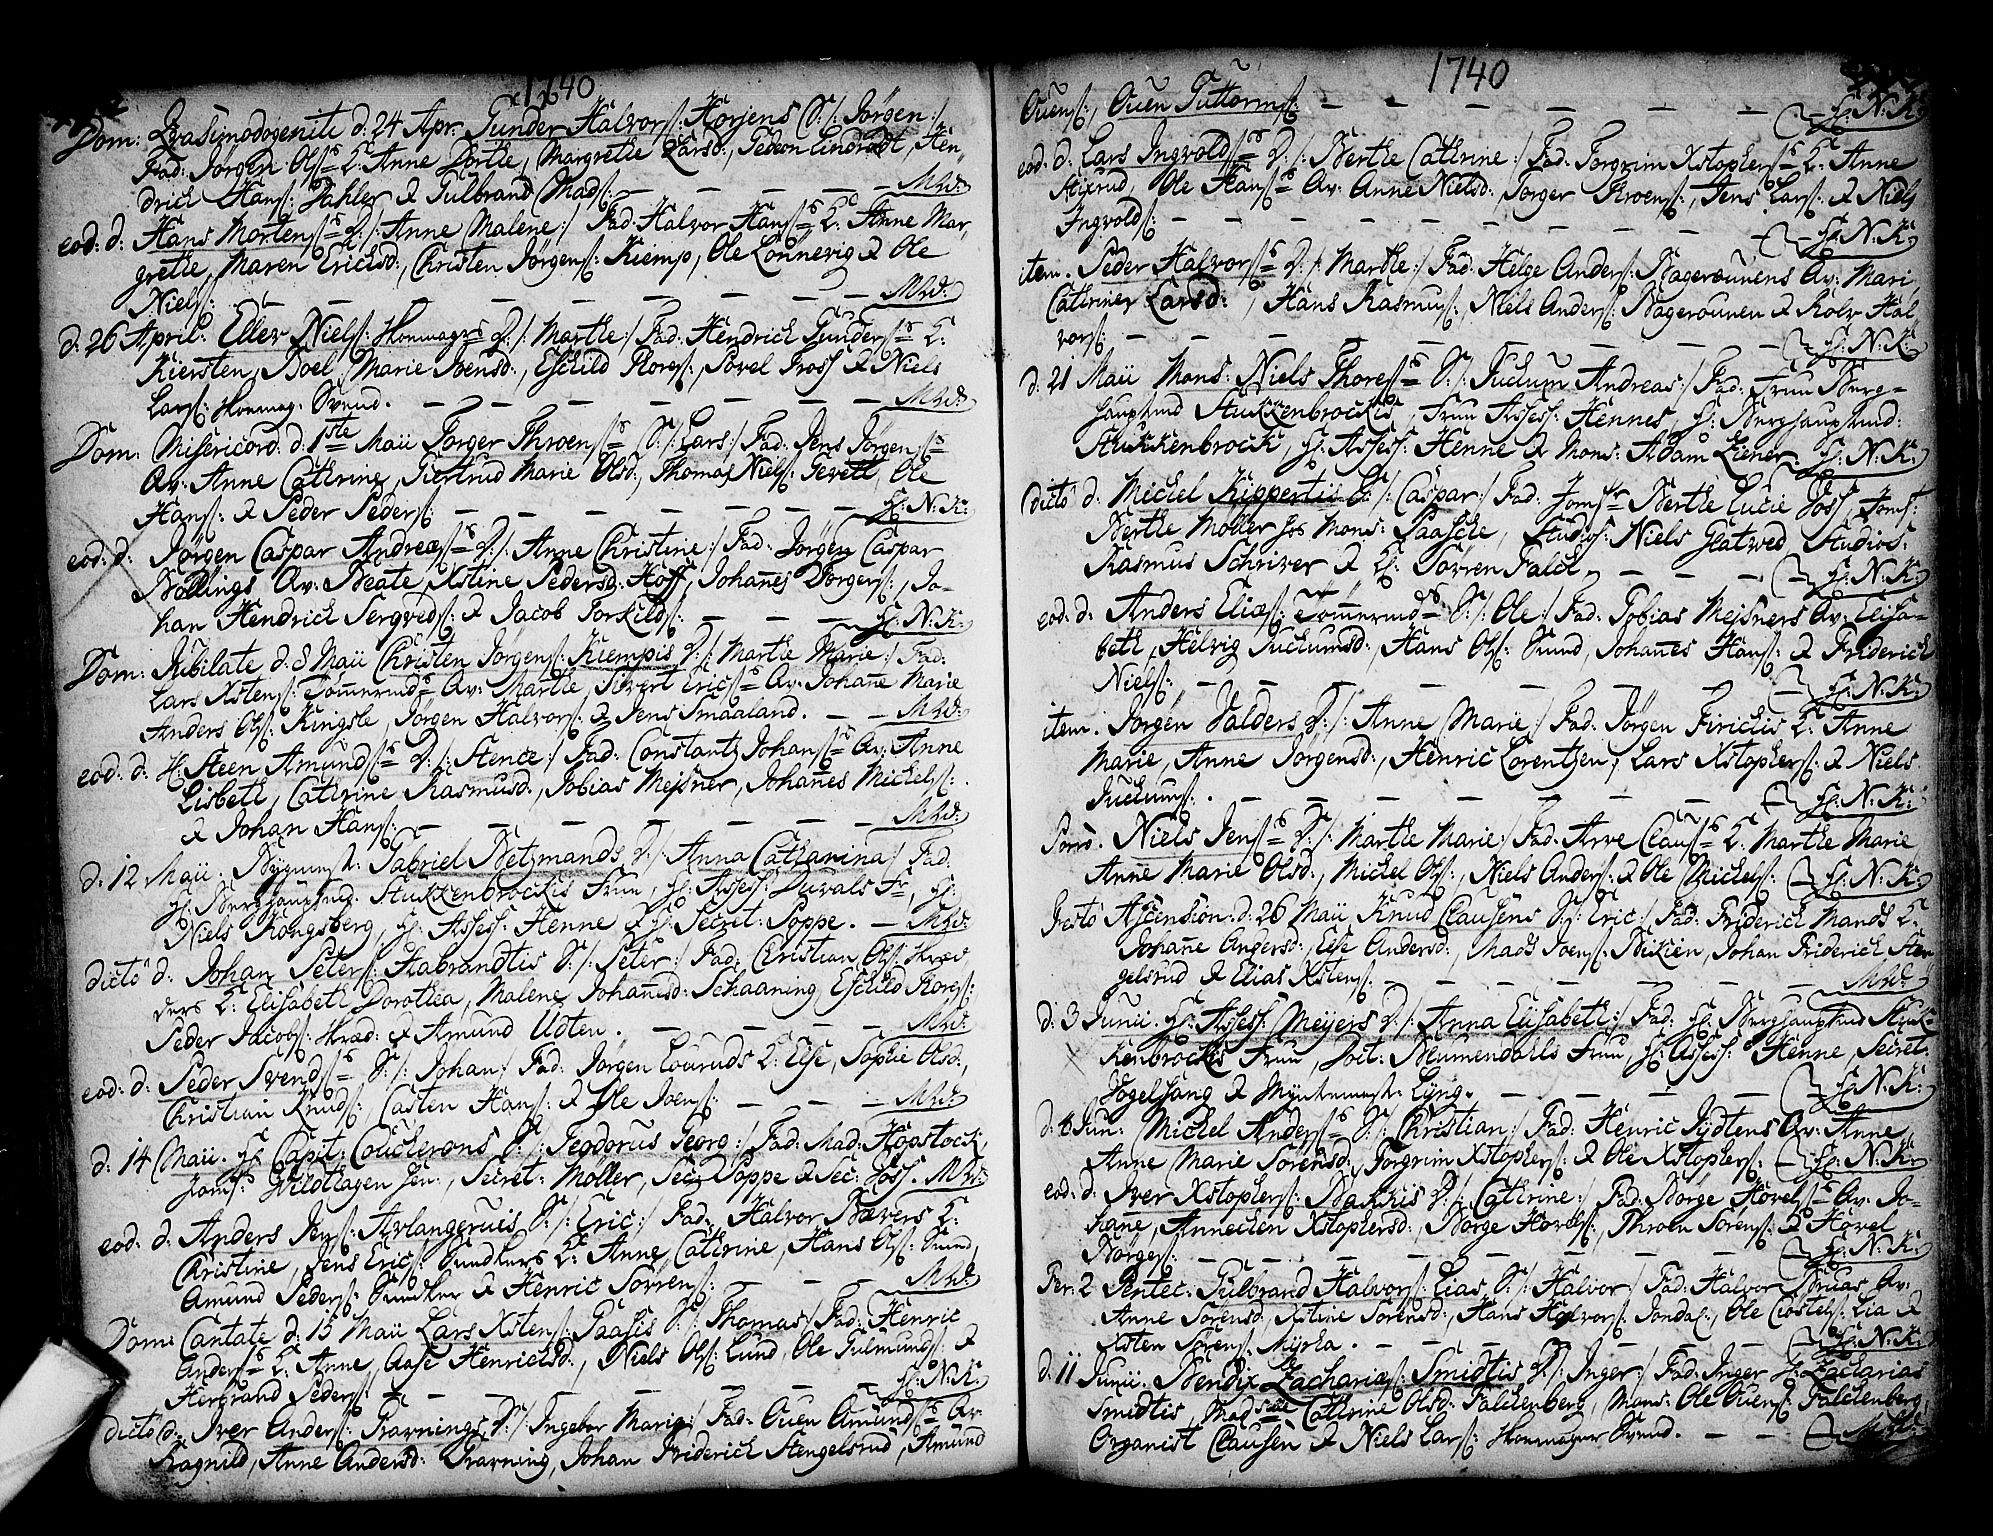 1740
Dom: Qvasimodogeniti d: 24 Apr. Gunder Halvors: Horjens S:/: Jørgen :/
Fad: Jørgen Ols: K: Anne Dorthe, Margrethe Larsd:, Gedeon Lindradt, Hen,,
drich Hans: Dahler & Gulbrand Mads: — — — —
eod: d: Hans Mortens: D:/: Anne Malene:/ Fad: Halvor Hans: K: Anne Mar,
grethe, Maren Ericksd:, Christen Jørgens: Kiemp, Ole Lønnevig & Ole
Niels: — — — — — —
d: 26 April: Ellev Niels: D:/: Marthe:/ Fad: Hendrich Gunders: K:
Kiersten, Boel, Marie Joensd:, Eschild Rores:, Povel Pross & Niels
Lars: Svend. — — — —
Dom: Misericord: d: 1ste Maii Torger Throens: S:/: Lars:/ Fad: Jens Jørgens:
Qv: Anne Cathrine, Giertrud Marie Olsd:, Thomas Niels: Gevelt, Ole
Hans: & Peder Peders: — — — — H: N: K:
eod: d: Jørgen Caspar Andreæs: D:/: Anne Christine:/ Fad: Jørgen Caspar
Bøllings Qv: Beate Xstine Pedersd: Hoff, Johannes Jørgens:, Jo-
han Hendrich Sergveds: & Jacob Torkilds: — — H: N: K:
Dom: Jubilate d: 8 Maii Christen Jørgens: Kiempis D:/: Marthe Marie:/ Fad:
Lars Xstens: Tømmeruds Qv: Marthe, Sivert Erics: Qv: Johanne Marie
Anders Ols: Kingsle, Jørgen Halvors: & Jens Smaaland. — —
eod: d: H: Steen Amunds: D:/: Stence:/ Fad: Constantz Johans: Qv: Anne
Lisbeth, Cathrine Rasmusd:, Tobias Mejsner, Johannes Michels:
& Johan Hans: — — — — —
d: 12 Maii. Gabriel Betzmands D:/: Anna Catharina:/ Fad:
H: Berghauptmd: Stukkenbrockis Frue, H: Assess: Duvals Fr, H:
Niels Kongsberg, H: Assess: Henne & H: Secret: Poppe. —
dicto d: Johan Peters: Stabrandtis S:/: Peter:/ Fad: Christian Ols: Skræd
ders K: Elisabeth Dorothea, Malene Johannisd: Schaaning, Eschild Rores:
Peder Jacobs: Skræd: & Amund Udten. — — —
eod: d: Peder Svends: S:/: Johan:/ Fad: Jørgen Louruds K: Else, Sophie Olsd:,
Christian Knuds:, Casten Hans: & Ole Joens: — — —
d: 14 Maii. H: Capit: Coucherons S:/: Teodorus Georg:/ Fad: Mad: Hopstock,
Jomf: Wildthagen Jen:, Secret: Møller, Secr: Poppe & Sec: Foss.
eod: d: Anders Jens: Avlangerueis S:/: Eric:/ Fad: Halvor Bævers K:
Christine, Jens Erics: Sundkers K: Anne Cathrine, Hans Ols: Svend,
Amund Peders: Sundker & Henric Sørrens: — —
Dom: Cantate d: 15 Maii Lars Xstens: Paasis S:/: Thomas:/ Fad: Henric
Anders: K: Anne, Aase Henrichsd:, Niels Ols: Lund, Ole Gulmunds: &
Herbrand Peders: — — — — — H: N: K:
dicto d: Iver Anders: Travnings D:/: Ingebor Marie:/ Fad: Ouen Amunds: Qv:
Ragnild, Anne Andersd: Travning, Johan Friderich Stengelsrud, Amund
1740
Ouens:, Ouen Guttorms: — — — — H: N: K:
eod: d: Lars Ingvolds: D:/: Berthe Cathrine:/ Fad: Torgrim Xstophers: K: Anne
Stixrud, Ole Hans: Qv: Anne Nielsd: Torger Throens:, Jens Lars: & Niels
Ingvolds: — — — — — — H: N: K:
item. Peder Halvors: D:/: Marthe:/ Fad: Helge Anders: Bagerounens Qv: Mari,
Cathrine Larsd:, Hans Rasmus:, Niels Anders: Bagerounen & Rolv Hal
vors: — — — — — H: N: K:
d: 21 Maii Mons: Niels Thores: S:/: Juchum Andreas:/ Fad: Frue Berg-
hauptmd Stukkenbrockis, Frue Assess: Hennes, H: Berghauptmd:
Stukkenbrock, H: Assess: Henne & Mons: Adam Liener. H: N: K:
dicto d: Michel Kippertii S:/: Caspar:/ Fad: Jomfr Berthe Lucie Foss, Jomf:
Berthe Møller hos Mons: Paasche, Studios: Niels Glatved, Studios:
Rasmus Schriver & H: Sørren Falck. — — H: N: K:
eod: d: Anders Eliæs: Tømmeruds S:/: Ole:/ Fad: Tobias Mejsners Qv: Elisa-
beth, Helvig Juchumsd:, Hans Ols: Svend, Johannes Hans: & Friderich
Niels: — — — — — H: N: K:
item. Jørgen Valders D:/: Anne Marie:/ Fad: Jørgen Firichis K: Anne
Marie, Anne Jørgensd:, Henric Lorentzen, Lars Xstophers: & Niels
Juchums: — — — — — H: N: K:
Porro. Niels Jens: D:/: Marthe Marie:/ Fad: Arve Claus: K: Marthe Marie
Anne Marie Olsd:, Michel Ols:, Niels Anders: & Ole Michels: H: N: K:
Festo Ascension: d: 26 Maii Knud Clausens S:/: Eric:/ Fad: Friderich Mands K:
Johanne Andersd:, Else Andersd:, Mads Joens: Bikien, Johan Friderich Sten
gelsrud & Elias Xstens: — — — —
d: 3 Junii. H: Assess: Meyers D:/: Anna Elisabeth:/ Fad: H: Berghauptmd Stuk-
kenbrockis Frue, Blumendalls Frue, H: Assess: Henne, Secret:
Vogelsang & Myntemester Lyng. — — — H: N: K:
d: 6 Jun: Michel Anders: S:/: Christian:/ Fad: Henric Jydtens Qv: Anne
Anne Marie Sørensd:, Torgrim Xstophers: & Ole Xstophers: H: N: K:
eod: d: Iver Xstophers: Bakkis D:/: Cathrine:/ Fad: Børge Hovels: Qv: Jo-
hane, Annechen Xstophersd:, Børge Hovels:, Throen Sørens: & Hovel
Børges: — — — — — H: N: K:
Fer: 2 Pentec: Gulbrand Halvors: Lias S:/: Halvor:/ Fad: Halvor Bruas Qv:
Anne Sørensd:, Xstine Sørensd:, Hans Halvors: Jondal:, Ole Costels: Lia &
Xsten Sørens: Myrla. — — — — H: N: K:
d: 11 Junii. Bendix Zachariæs: Smidtis D:/: Inger:/ Fad: Inger H: Zacharias
Smidtis, Cathrine Olsd: Falckenberg, Mons: Ole Ouens: Falckenberg,
Organist Clausen & Niels Lars: Svend. — —